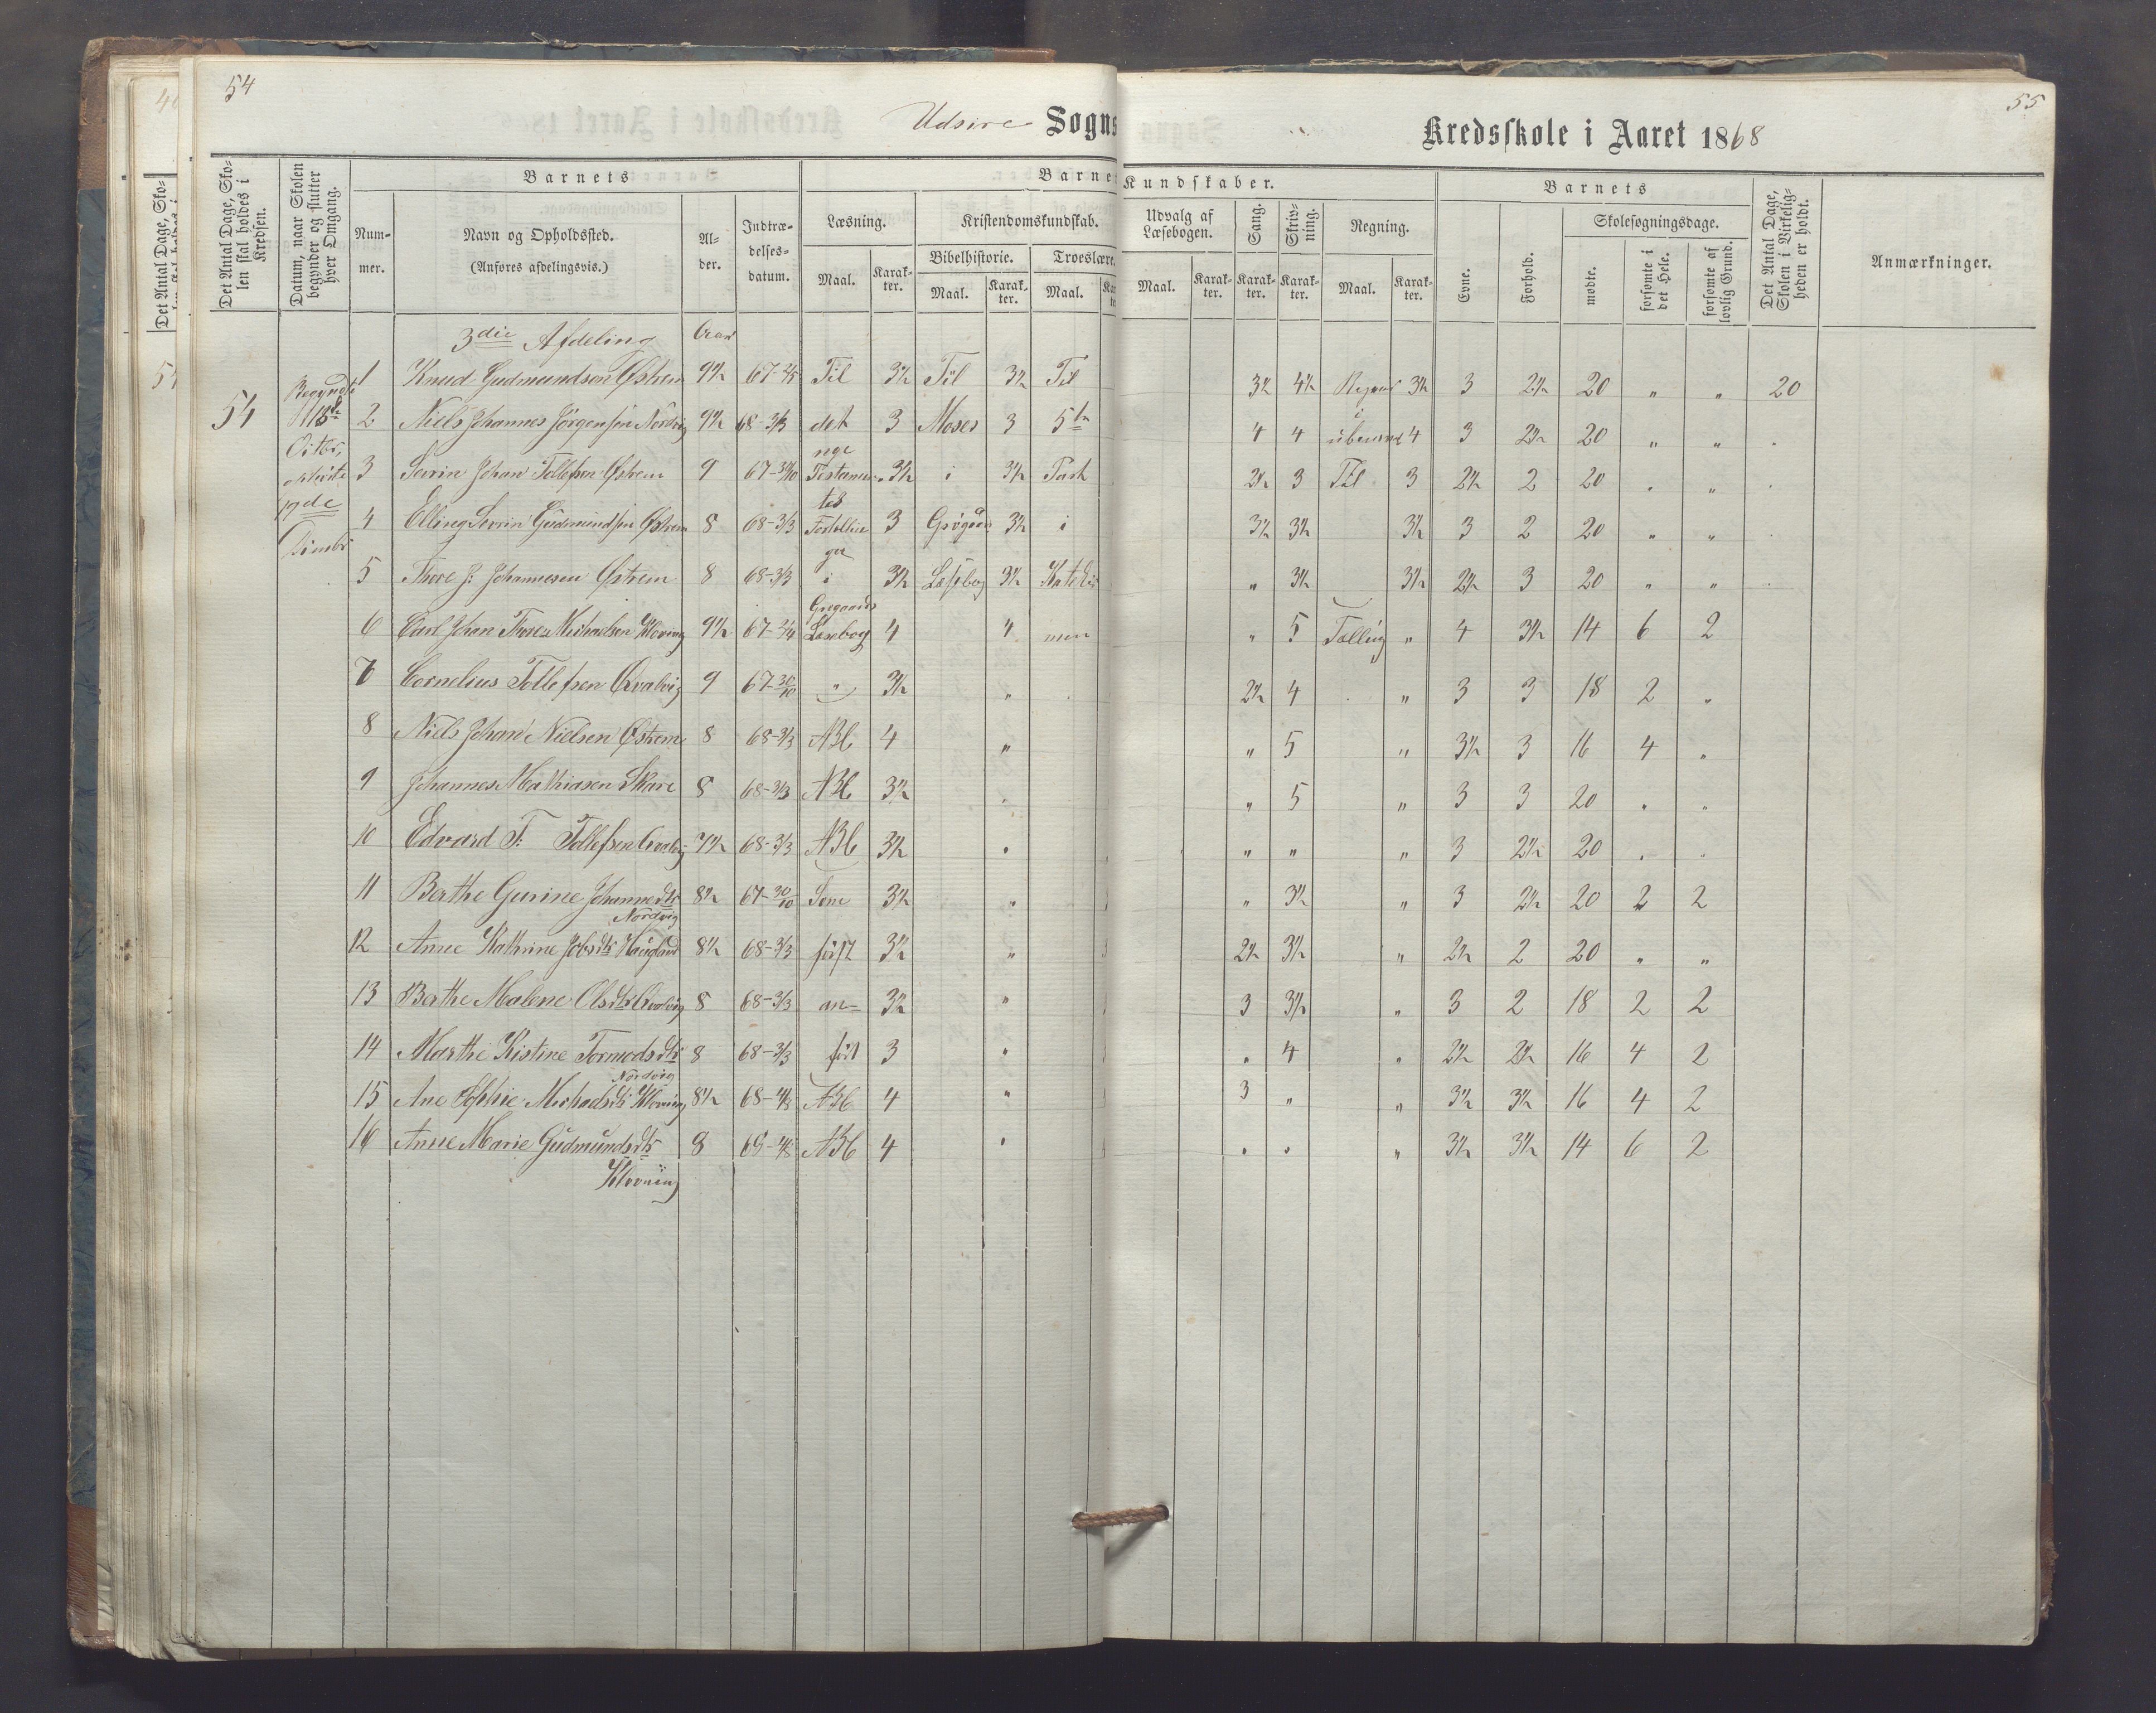 54
55
Udsire Sogns Kredsskole i Aaret 1868
Det Antal Dage, Skolen skal holdes i Kredsen.
Datum, naar Skolen begynder og slutter hver Omgang.
Barnets
Nummer.
Navn og Opholdssted.
(Anføres afdelingsvis.)
Alder.
Indtrædelsesdatum.
Barnets Kundskaber.
Læsning.
Maal. Karakter.
Kristendomskundskab.
Bibelhistorie. Troeslære.
Maal. Karakter. Maal.
Udvalg af Læsebogen.
Maal. Karakter.
Sang. Karakter.
Skrivning. Karakter.
Regning.
Maal. Karakter.
Barnets
Evne.
Forhold.
Skolesøgningsdage.
mødte.
forsømte i det Hele.
forsømte af lovlig Grund.
Det Antal Dage, Skolen i Virkeligheden er holdt.
Anmærkninger.
3die Afdeling Aar
54
1 Knud Gudmundsen Østrem 9½ 67 Til 3½ Til 3½ Til 3½ 4½ 3½ 3 2½ 20 " " 20
2 Niels Johannes Jörgensen Nordvig 9½ 68-3/3 det 3 Moses 3 5te 4 4 i 4 3 2½ 20 " "
3 Sevrin Johan Tollefsen Østrem 9 67-30/10 nye Testamen- 3½ i 3½ Part 2½ 3 Til 3 2½ 2 20 " "
4 Elling Sevrin Gudmundsen Østrem 8 68-3/3 tes 3 3½ i 3½ 3½ 3½ 3 2 20 " "
5 Thore J: Johannesen Østrem 8 68-3/3 i 3½ Læsebog 3½ " 3½ 3½ 2½ 3 20 " "
6 Carl Johan Thores Michaelsen Kloving 9½ 67 Læsebog 4 4 " 5 Tælling " 4 3½ 14 6 2
7 Cornelius Tollefsen Qvalvig 9 67-30/10 " 3½ " 2½ 4 " 3 3 18 2 "
8 Niels Johan Nielsen Østrem 8 68-3/3 ABC 4 " " 5 " 3½ 3 16 4 "
9 Johannes Mathiasen Skare 8 68-3/3 ABC 3½ " " 5 " 3 3 20 " "
10 Edvard T: Tollefsen Qvalvig 7½ 68-3/3 ABC 3½ " " " " 3 2½ 20 " "
11 Berthe Gurine Johannesdtr Nordvig 8½ 67-30/10 Som 3½ " " 3½ " 3 2½ 20 2 2
12 Anne Kathrine Jobsdtr Hauglend 8½ 68-3/3 först 3½ " 2½ 3½ " 2½ 2 20 " "
13 Berthe Malene Olsdtr Qvalvig 8 68-3/3 an= 3½ " 3 3½ " 3 2 18 2 2
14 Marthe Kistine Tormodsdtr Nordvig 8 68-3/3 ført 3 " " 4 " 2½ 2½ 16 4 2
15 Ane Sophie Michaelsdtr Kloving 8½ 68 ABC 4 " 3 " " 3½ 3½ 16 4 2
16 Anne Marie Gudmundsdtr Kloving 8 ABC 4 " " " " 3½ 3½ 14 6 2